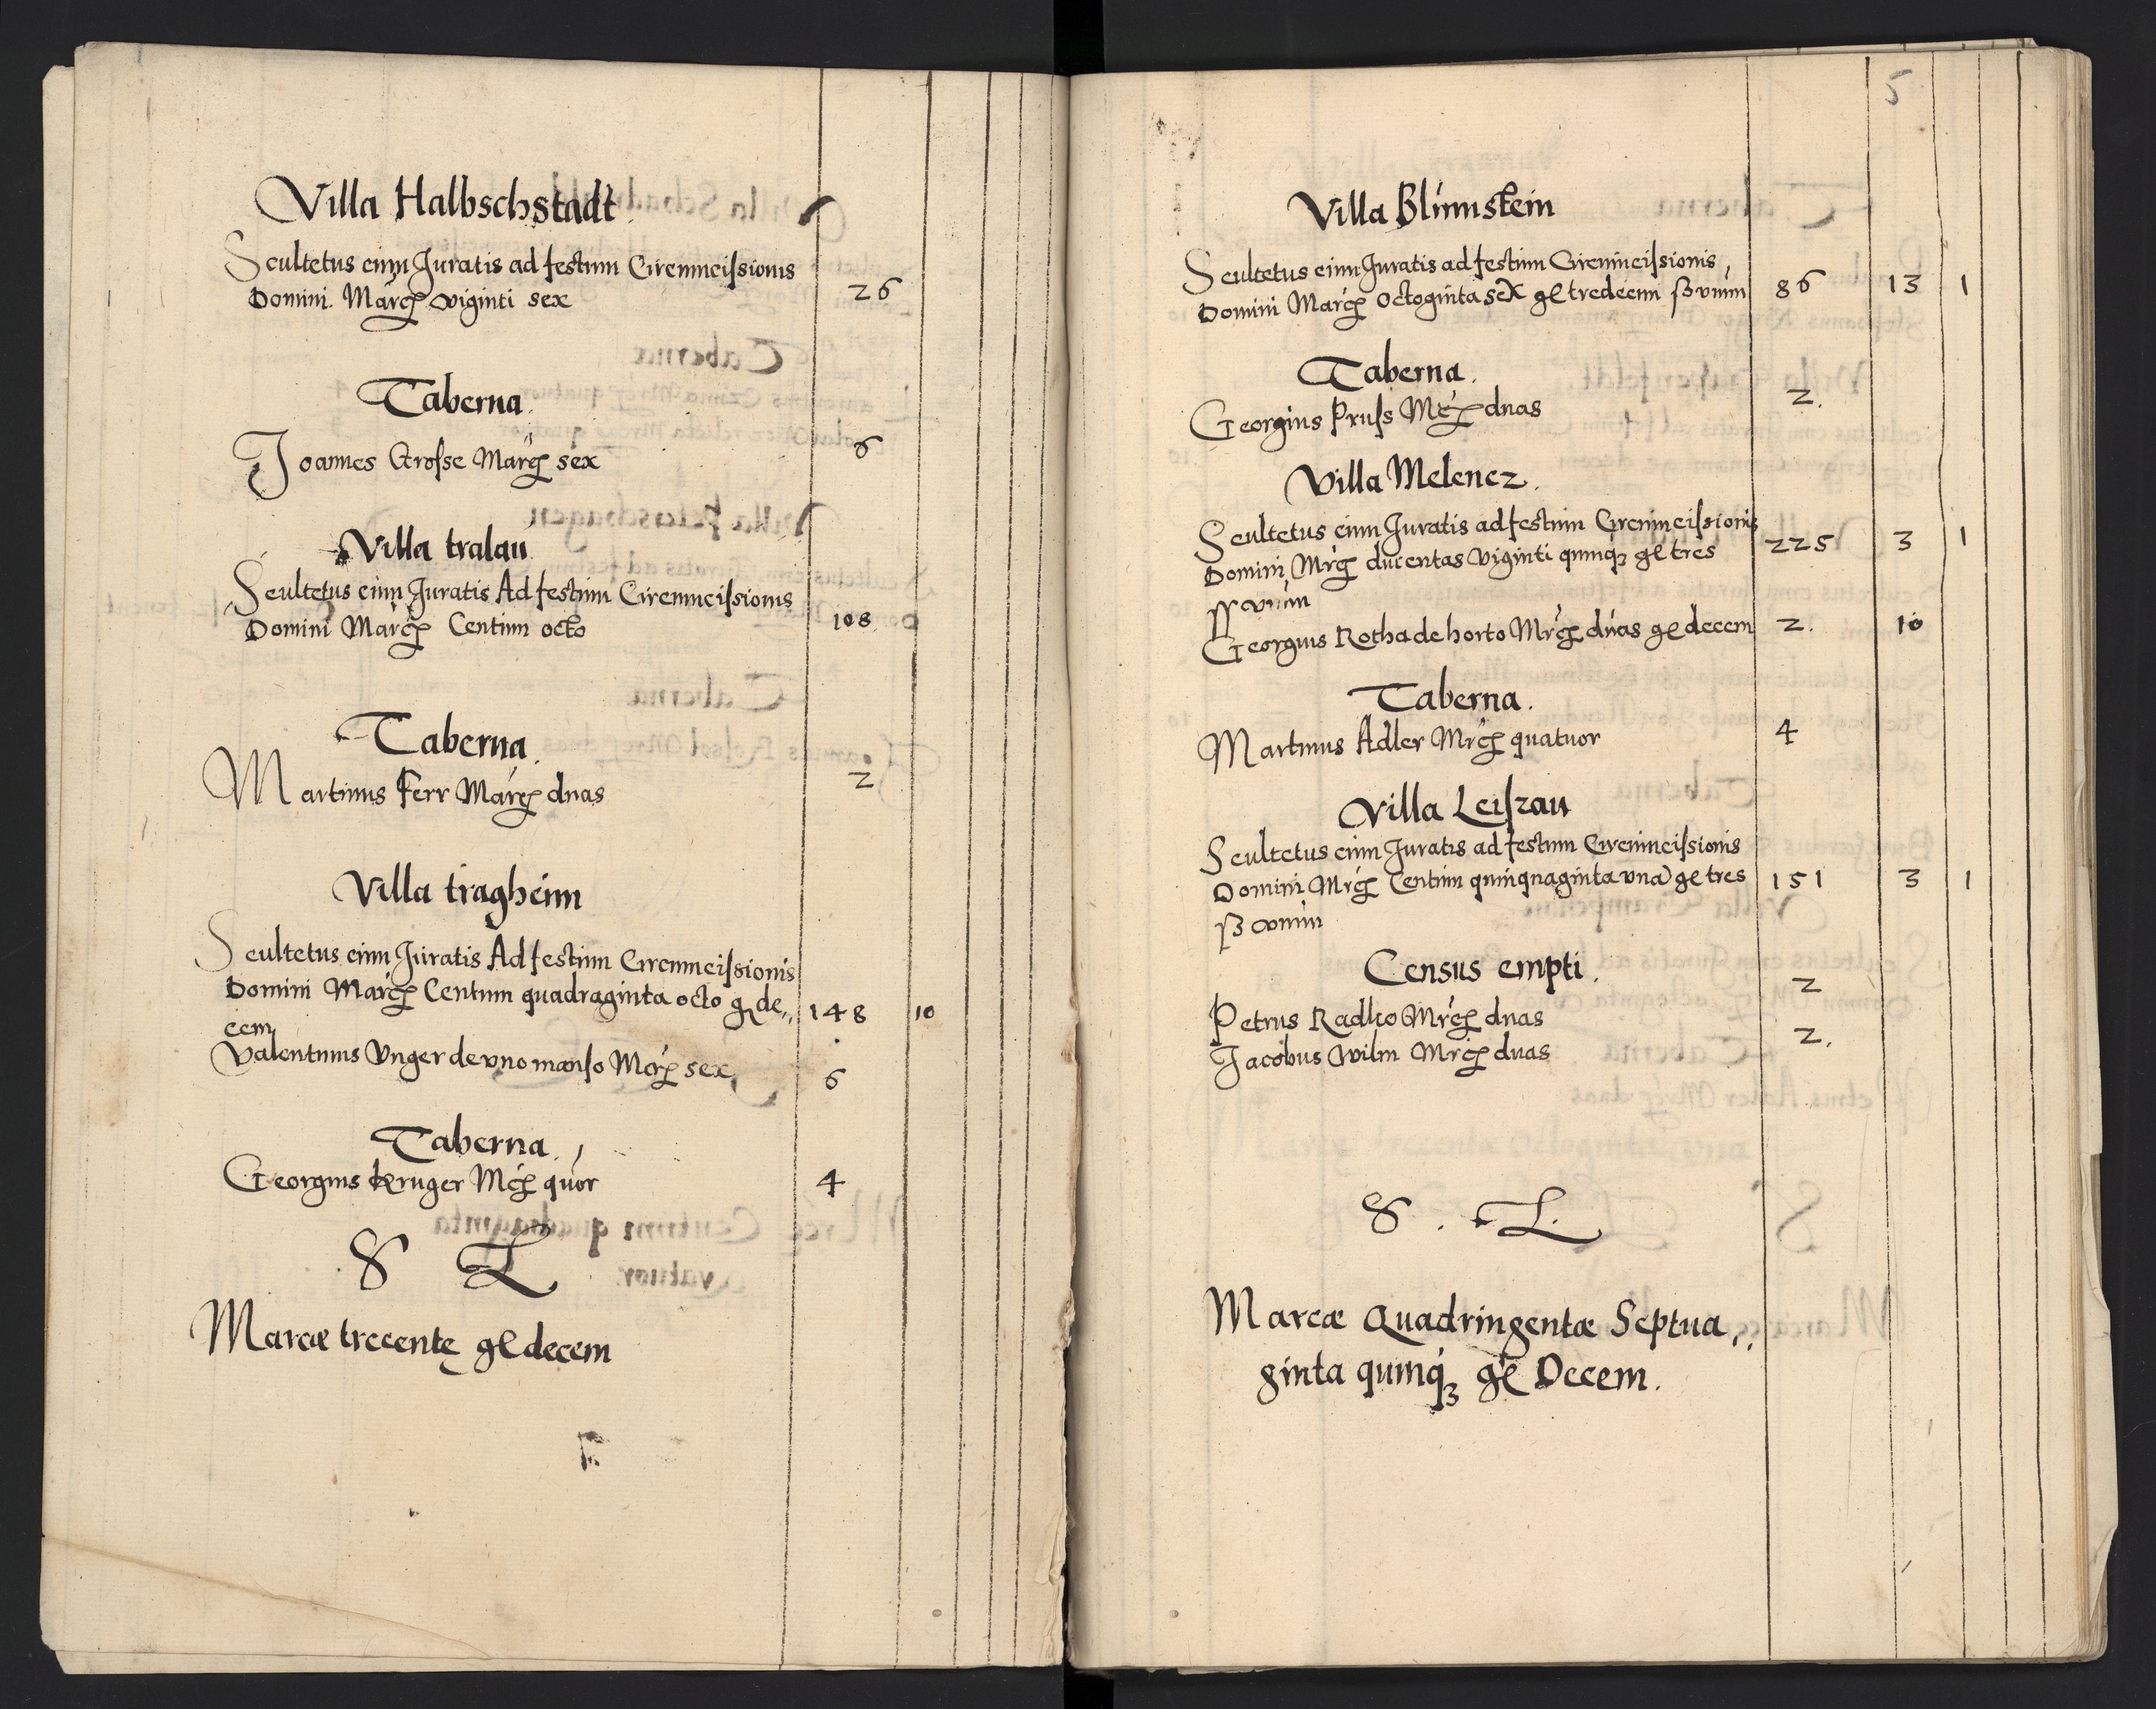 Villa Halbschstadt.
Scultetus cum Juratis ad festum Circumcissionis 26
Domini. Marcę viginti sex
Taberna.
Joannes Grosse Marcę sex 6
Villa tralau
Scultetus cum Juratis Ad festum Circumcissionis
Domini Marcę Centum octo 108
Taberna.
Martinus Ferr Marcę duas 2
Villa tragheim
Scultetus cum Juratis Ad festum Circumcissionis
Domini Marcę Centum quadraginta octo g de,, 148 10
cem
Valentinus Unger de uno manso Mrcę sex 6
Taberna.
Georgius Kruger Mcę quor 4
S L
Marcæ trecentę gl decem
5
Villa Blumstein
Scultetus cum Juratis ad festum Circumcissionis
Domini Marcę Octoginta sex gl tredecim ß vnum 86 13 1
Taberna.
Georgius Pruss Mrcę duas 2.
Villa Melencz.
Scultetus cum Juratis ad festum Circumcissionis
Domini Mrcę ducentas viginti quinqꝫ gl tres 225 3 1
ß vnum
Georgius Rotha de horto Mrcę duas gl decem 2. 10
Taberna.
Martinus Adler Mrcę quatuor 4
Villa Leiszau
Scultetus cum Juratis ad festum Circumcissionis
Domini Mrcę Centum quinquaginta vna gl tres 151 3 1
ß vnum
Census empti.
Petrus Radlio Mrcę duas 2
Jacobus Wilm Mrcę duas 2.
S. L.
Marcæ Quadringentæ Septua,,
ginta quinqꝫ gl Decem.